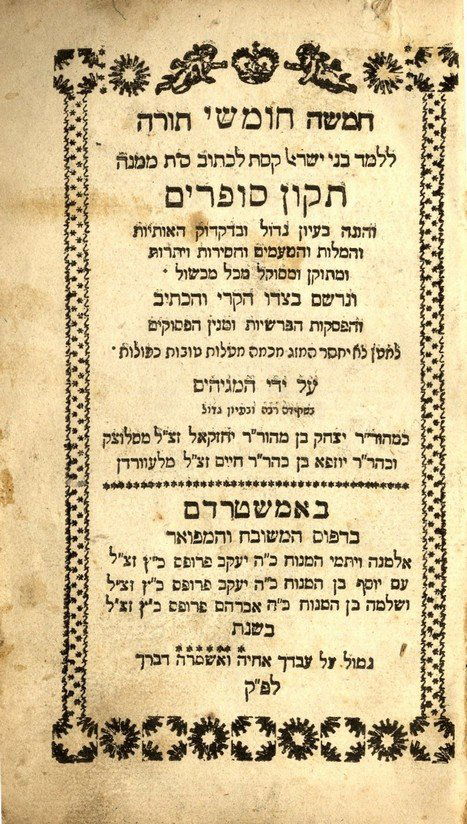 חמשה חומשי תורה
ללמד בני ישראל קסת לכתוב ס״ת ממנה
תקון סופרים
והוגה בעיון גדול ובדקדוק האותיות
והמלות והטעמים וחסירות ויתרות
ומתוקן ומסוקל מכל מכשול ׃
ונרשם בצדו הקרי והכתיב
והפסקות הפרשיות ומנין הפסוקים
למען לא יחסר המזג מכמה מעלות טובות כפולות ׃
על ידי המגיהים
בשקידה רבה ובעיון גדול
כמהור״ר יצחק בן מהור״ר יחזקאל זצ״ל ממלוצק
וכהר״ר יוזפא בן כהר״ר חיים זצ״ל מלעוורדן
באמשטרדם
בדפוס המשובח והמפואר
אלמנה ויתמי המנוח כ״ה יעקב פרופס כ״ץ זצ״ל
עם יוסף בן המנוח כ״ה יעקב פרופס כ״ץ זצ״ל
ושלמה בן המנוח כ״ה אברהם פרופס כ״ץ זצ״ל
בשנת
גמול על עבדך אחיה ואשמרה דברך
לפ״ק